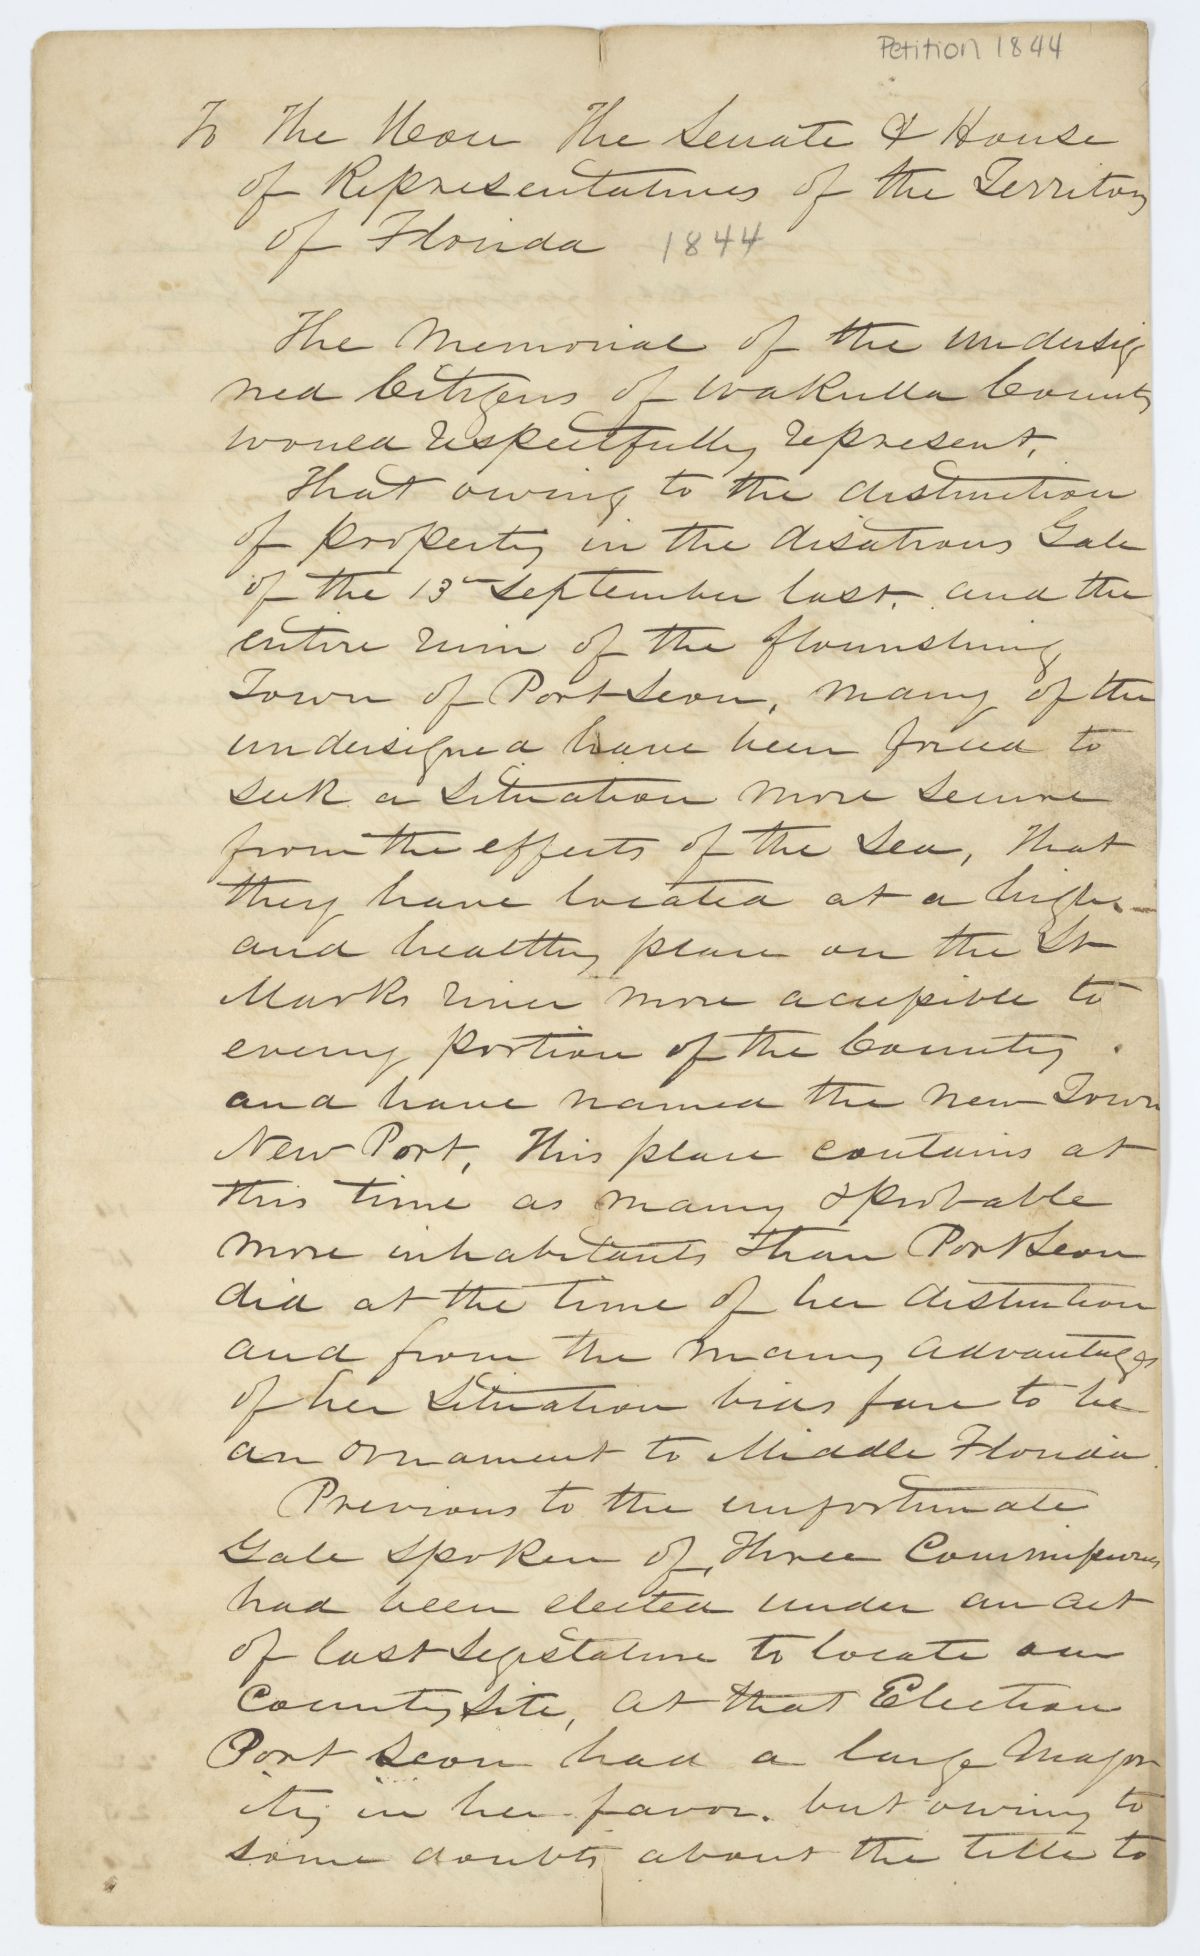 Petition 1844
To The Hon The Senate & House
of Representatives of the Territory
of Florida 1844
The Memorial of the undersig
ned Citizens of Wakulla County
would respectfully represent,
That owing to the distruction
of property in the disatrous Gale
of the 13th September last, and the
entire ruin of the flourishing
Town of Port Leon, many of the
undersigned have been forced to
seek a situation more secure
from the effects of the Sea, That
they have located at a high
and healthy place on the St
Marks river more accessible to
every portion of the County
and have named the new Town
New Port, This place contains at
this time as many & probable
more inhabitants than Port Leon
did at the time of her distruction
and from the many advantages
of her Situation bids fare to be
an ornament to Middle Florida
Previous to the unfortunate
Gale spoken of, Three Commissioners
had been elected under an act
of last Legislature to locate our
County Site, at that Election
Port Leon had a large Major
ity in her favor. but owing to
some doubts about the title to